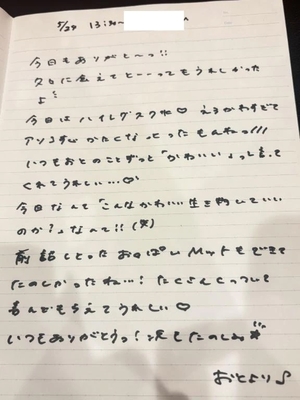 5/29 13:30〜
今日もありがと〜っ!!
久々に会えてと――ってもうれしかった
よ
今日はハイレグスク水♡ えろかわすぎて
アソコすぐかたくなっとったもんねっ!!!
いつもおとのことずっと「かわいい」っし言って
くれてうれしい…♡
今日なんて「こんなかわいい生き物いていい
のか？」なんて!! (笑)
前話しとったおっぱいMットもできて
たのしかったね…! たくさんくっついて
喜んでもらえてうれしい♡
いつもありがとうっ! 次もたのしみ
おとより♪